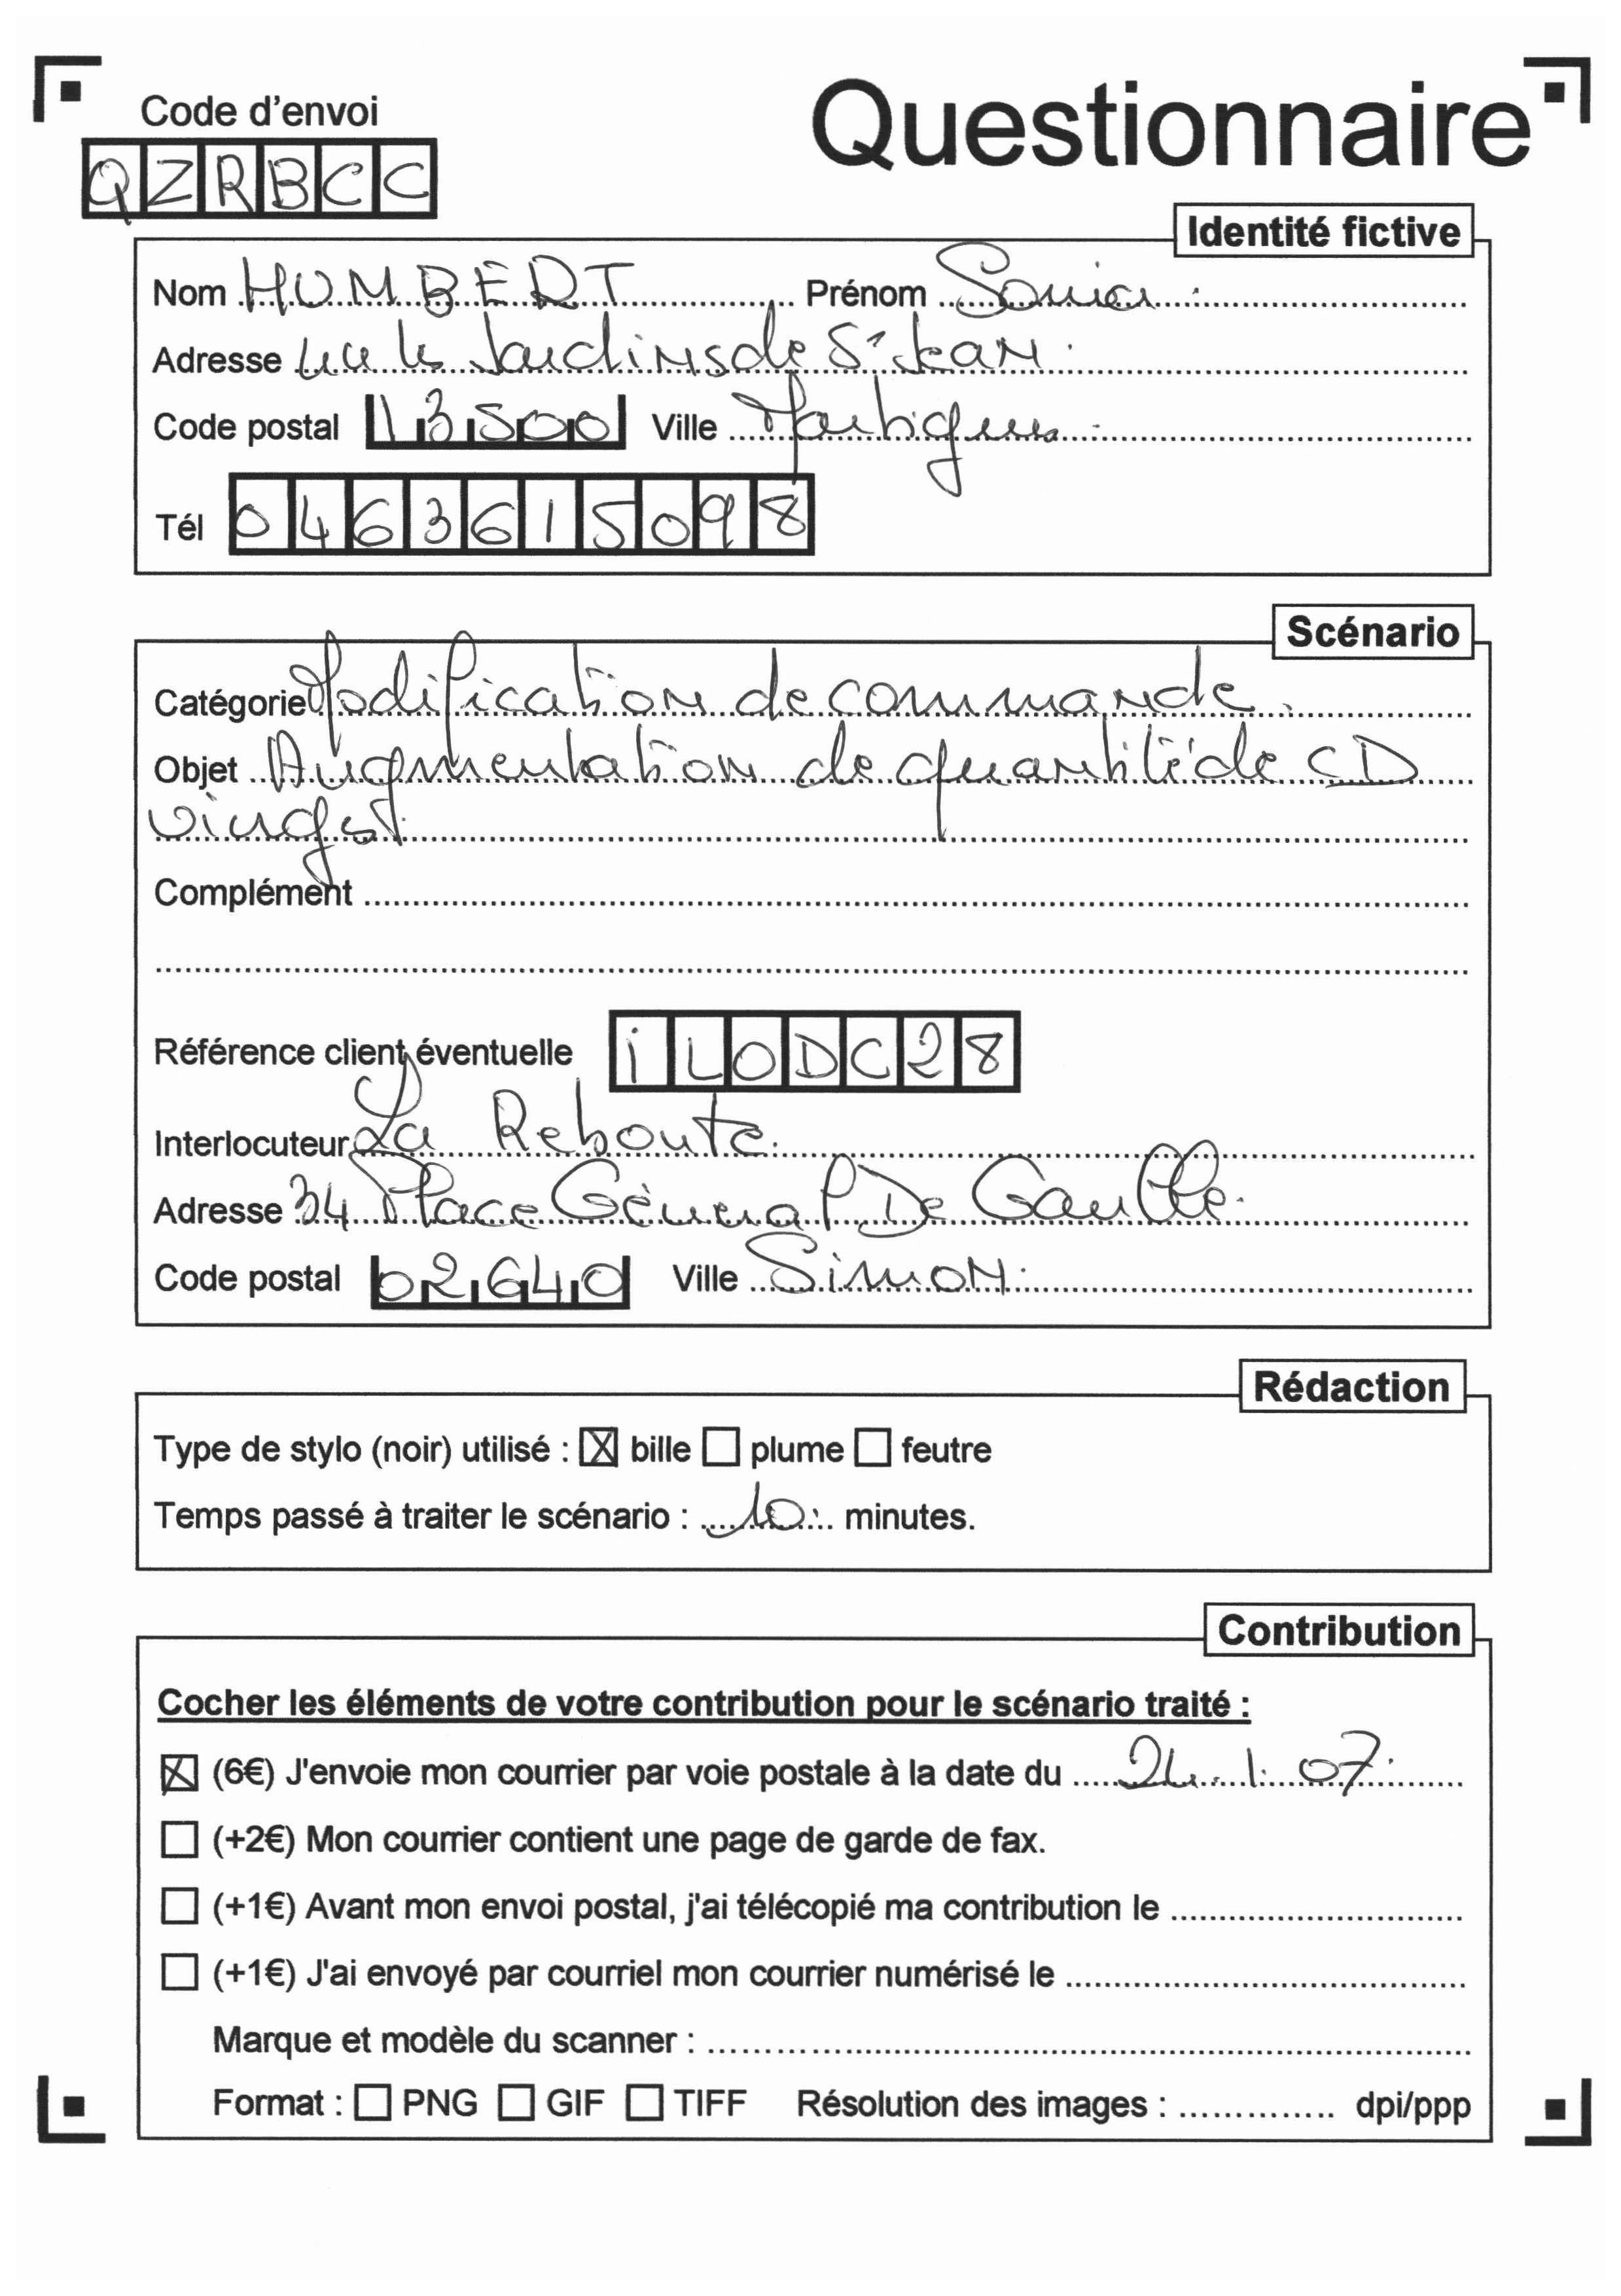 Code d'envoi
Questionnaire
QZRBCC
Identité fictive
Nom HUMBERT Prénom Sonia
Adresse Jardins de St Jean.
Code postal 13500 Ville Martigues
Tél 0463615098
Scénario
Catégorie Modification de commande.
Objet Augmentation de quantité de CD
vingt
Complément
Référence client éventuelle iLODC28
Interlocuteur La Redoute.
Adresse 34 Place Général De Gaulle.
Code postal 02640 Ville Simon.
Rédaction
Type de stylo (noir) utilisé : ☒ bille ☐ plume ☐ feutre
Temps passé à traiter le scénario : 10 minutes.
Contribution
Cocher les éléments de votre contribution pour le scénario traité :
☒ (6€) J'envoie mon courrier par voie postale à la date du 24.1.07.
☐ (+2€) Mon courrier contient une page de garde de fax.
☐ (+1€) Avant mon envoi postal, j'ai télécopié ma contribution le
☐ (+1€) J'ai envoyé par courriel mon courrier numérisé le
Marque et modèle du scanner :
Format : ☐ PNG ☐ GIF ☐ TIFF Résolution des images : dpi/ppp